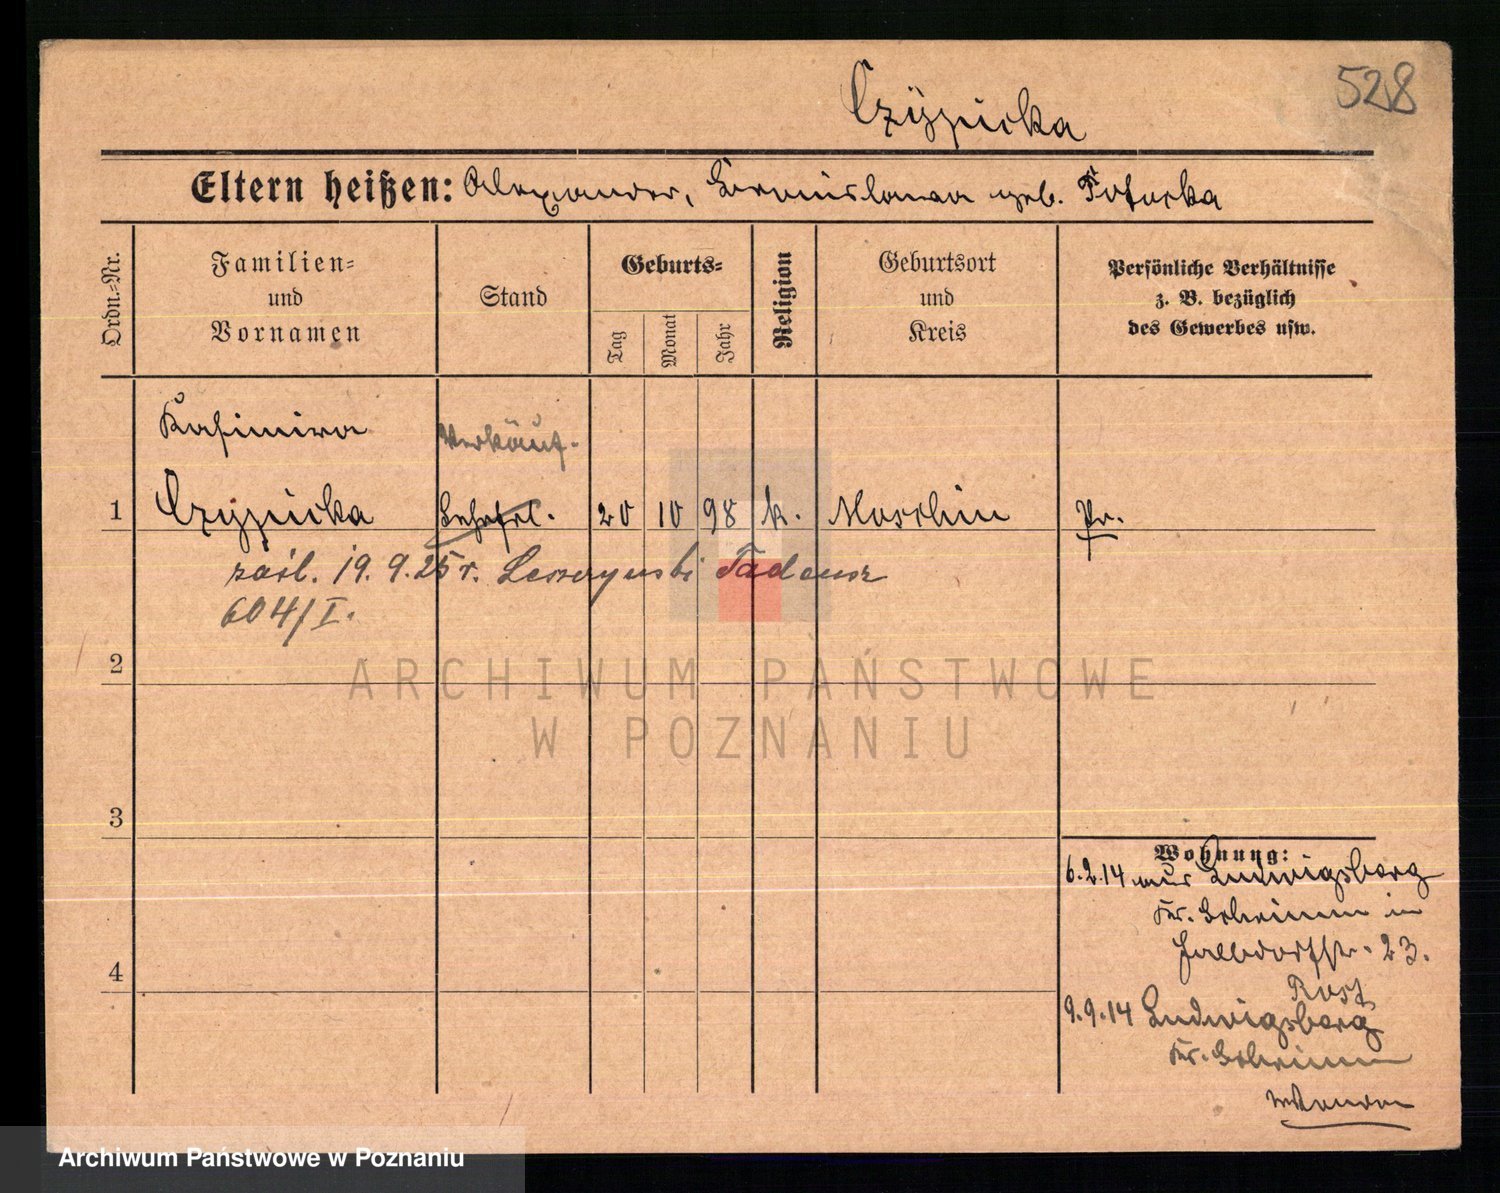 528
Czÿpicka
Eltern heißen: Alexander, Bronislawa geb. Potocka
Ordn.-Nr.
Familien-
und
Vornamen
Stand
Geburts-
Tag
Monat
Jahr
Religion
Geburtsort
und
Kreis
Persönliche Verhältnisse
z. B. bezüglich
des Gewerbes usw.
Kasimira
Verkäuf.
1 Czypicka Lehrfrl. 20 10 98 k. Moschin Pr.
zaśl. 19.9.25 r. Leszczynski Tadeusz
604/I.
2
3
4
Wohnung:
6.2.14 aus Ludwigsberg
Kr. Schrimm in
23.
9.9.14 Ludwigsberg
Kr. Schrimm
ARCHIWUM PAŃSTWOWE
W POZNANIU
Archiwum Państwowe w Poznaniu